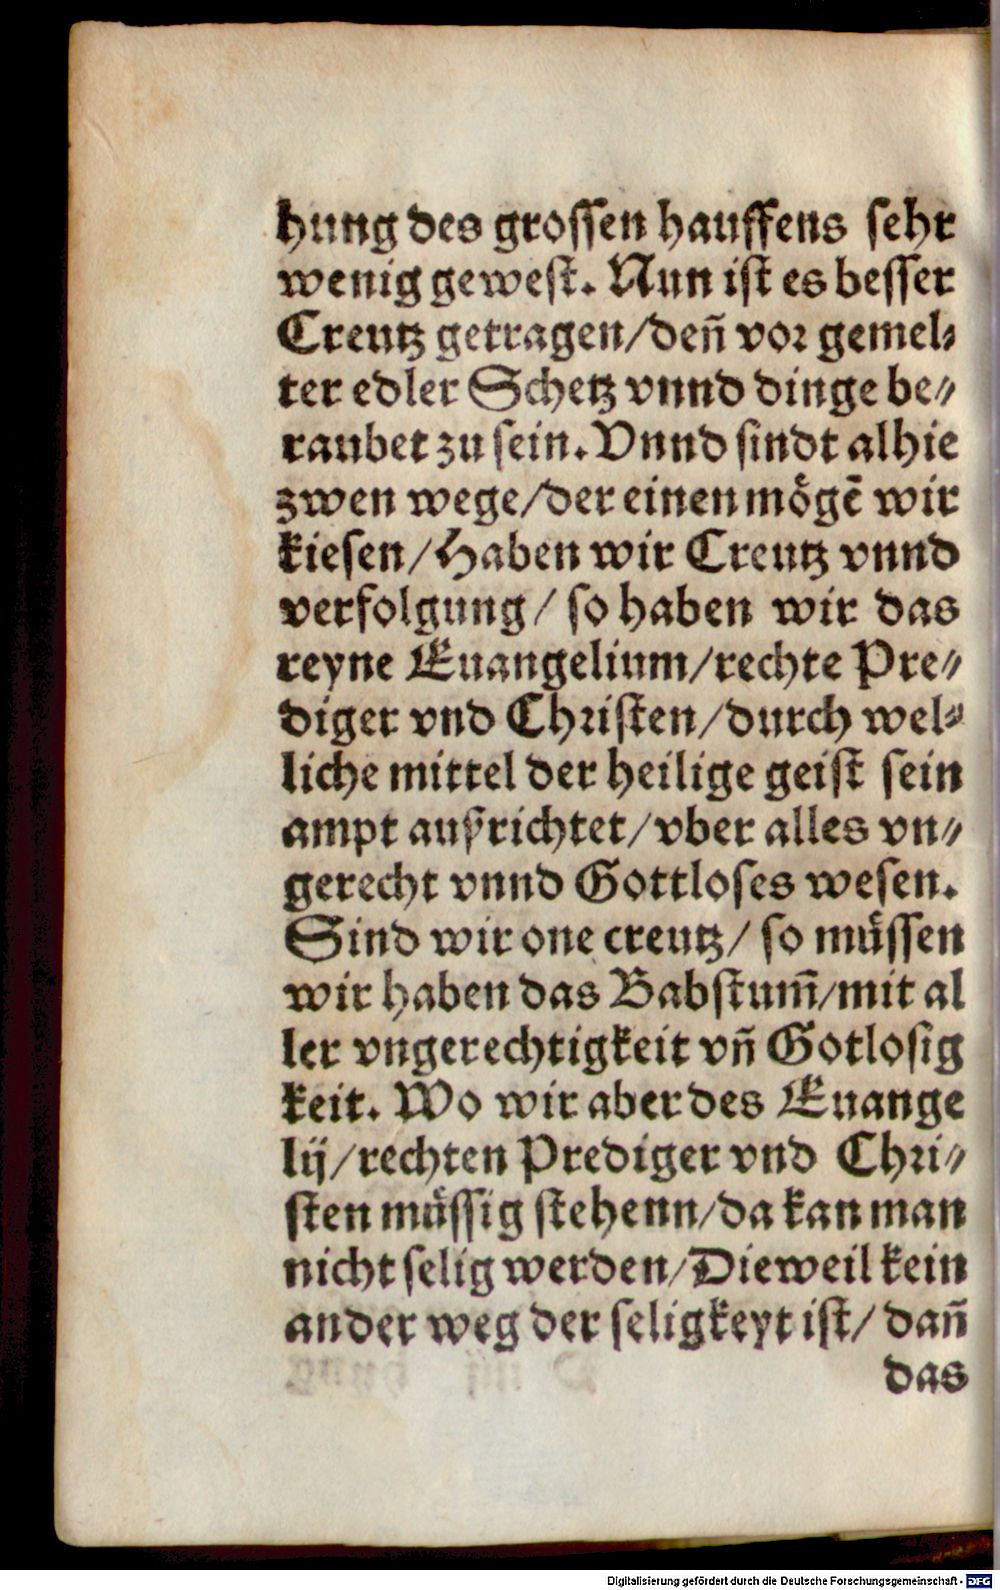 hung des grossen hauffens sehr
wenig gewest. Nun ist es besser
Creutz getragen/deñ vor gemel⸗
ter edler Schetz vnnd dinge be⸗
raubet zu sein. Vnnd sindt alhie
zwen wege/der einen mögē wir
kiesen/Haben wir Creutz vnnd
verfolgung/ so haben wir das
reyne Euangelium/rechte Pre⸗
diger vnd Christen/durch wel⸗
liche mittel der heilige geist sein
ampt ausrichtet/vber alles vn⸗
gerecht vnnd Gottloses wesen.
Sind wir one creutz/ so müssen
wir haben das Babstum̃/mit al
ler vngerechtigkeit vñ Gotlosig
keit. Wo wir aber des Euange
lij/rechten Prediger vnd Chri⸗
sten müssig stehenn/da kan man
nicht selig werden/Dieweil kein
ander weg der seligkeyt ist/ dañ
das
Digitalisierung gefördert durch die Deutsche Forschungsgemeinschaft - DFG